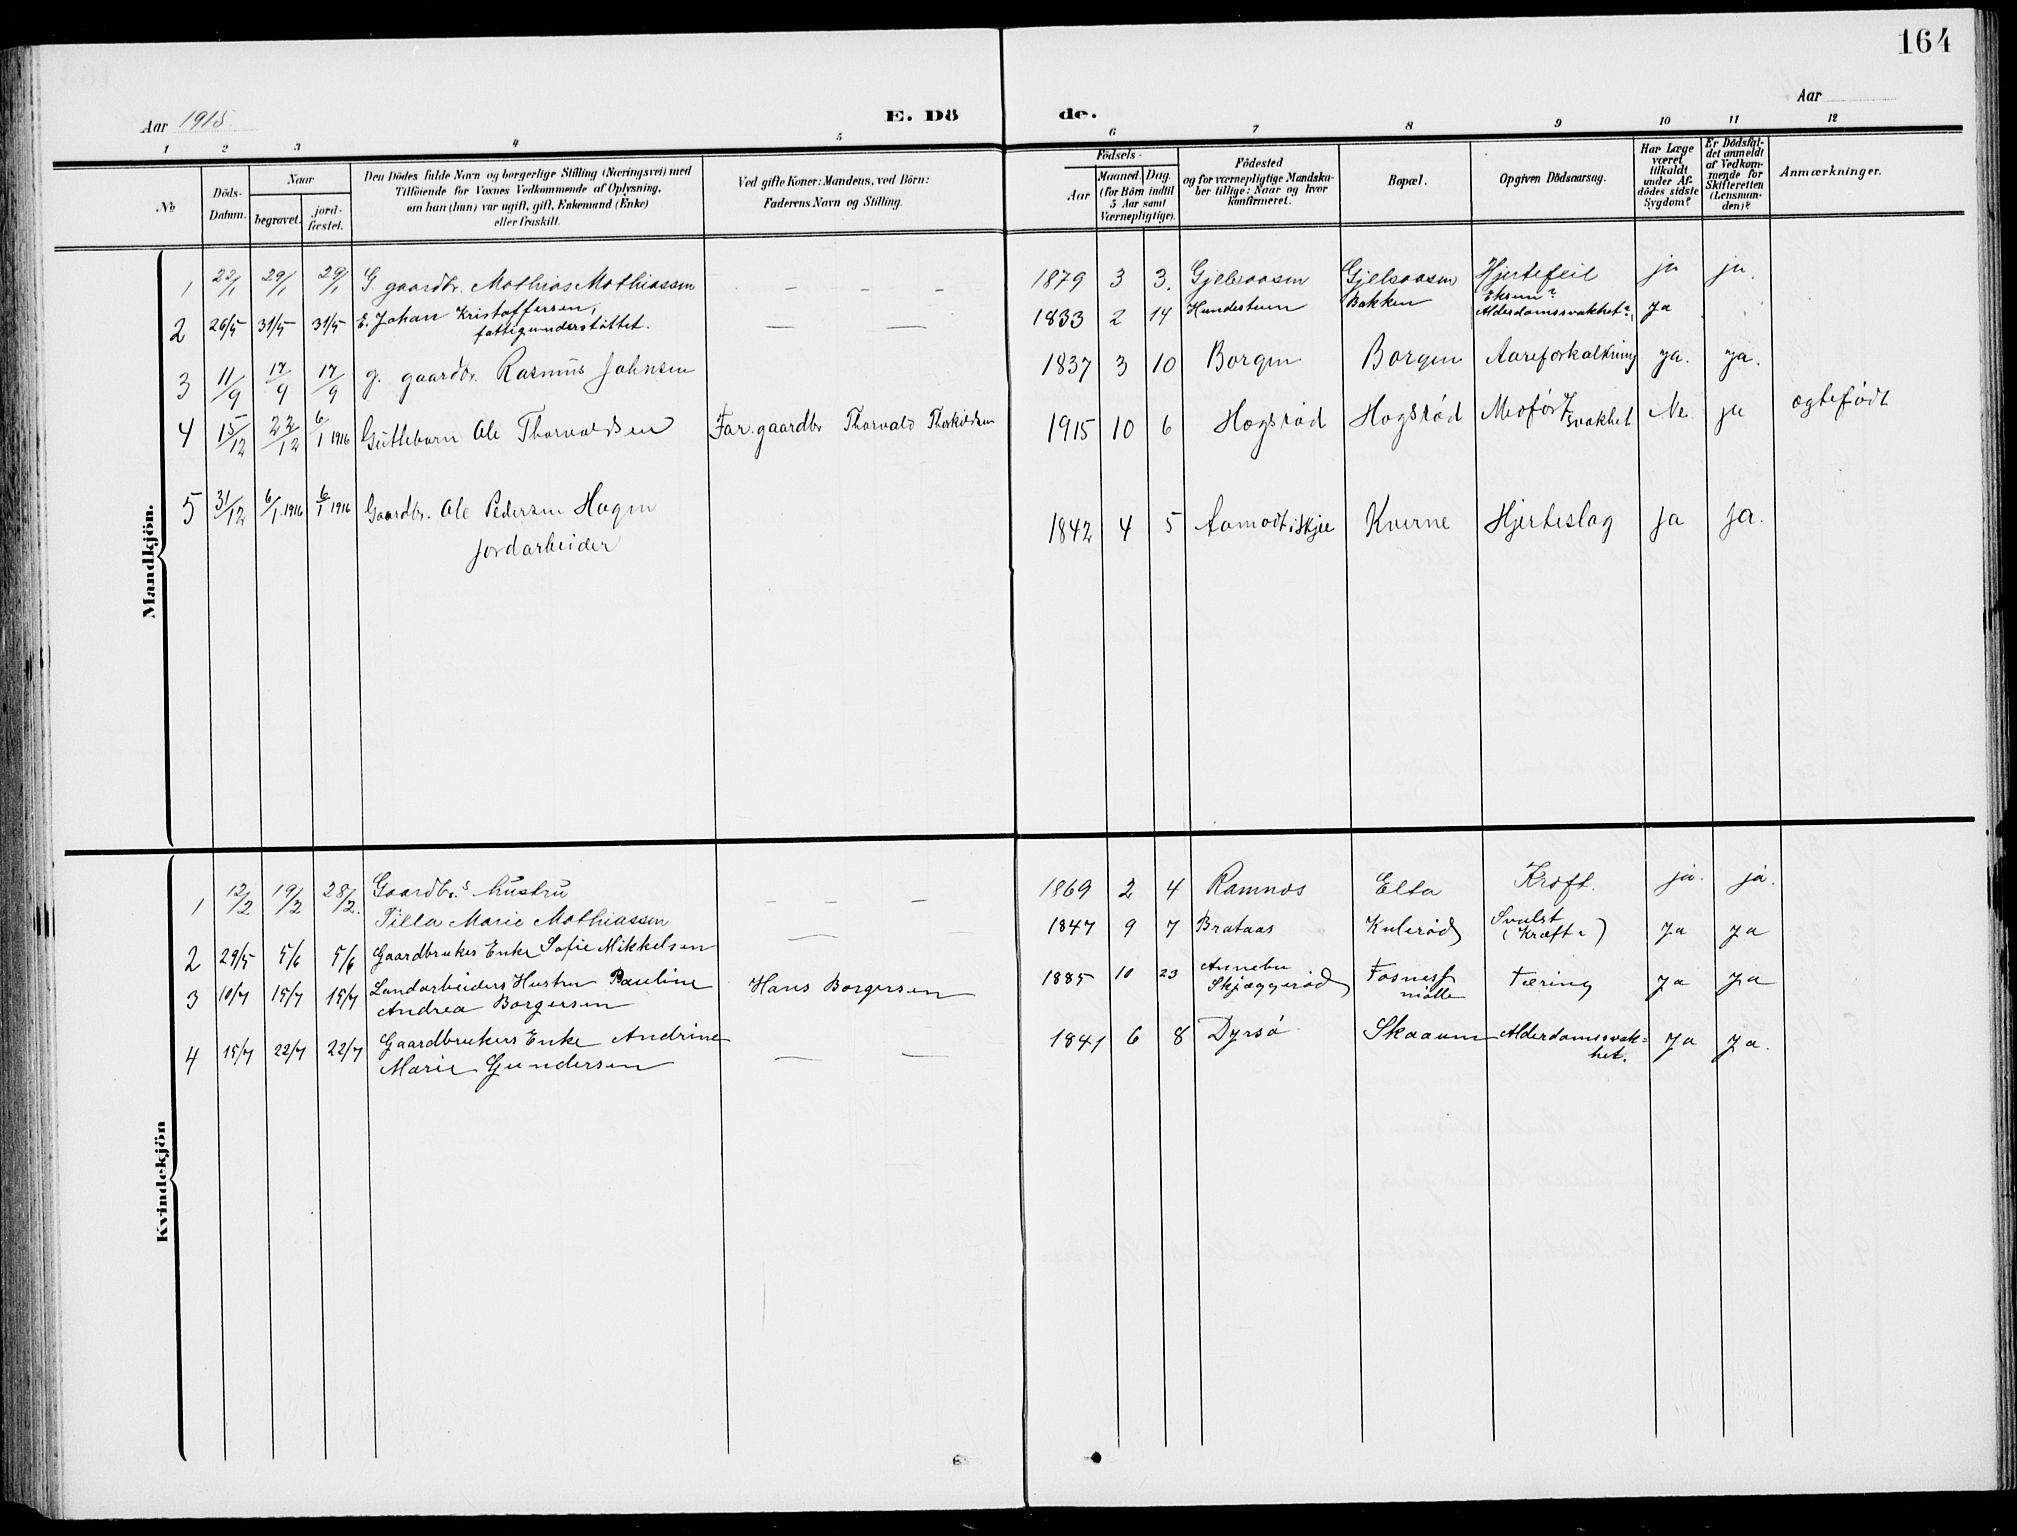 164
Aar 1915
E. Dö
de.
Aar
1 2 3 4 5 6 7 8 9 10 11 12
No
Döds-Datum.
Naar
begravet.
jord-fæstet.
Den Dödes fulde Navn og borgerlige Stilling (Næringsvei) med
Tilföiende for Voxnes Vedkommende af Oplysning,
om han (hun) var ugift, gift, Enkemand (Enke)
eller fraskilt.
Ved gifte Koner: Mandens, ved Börn:
Faderens Navn og Stilling.
Födsels-
Aar
Maaned. Dag.
(for Börn indtil
5 Aar samt
Værnepligtige).
Födested
og for værnepligtige Mandska-
ber tillige: Naar og hvor
konfirmeret.
Bopæl.
Opgiven Dödsaarsag.
Har Læge
været
tilkaldt
under Af-
dödes sidste
Sygdom?
Er Dödsfal-
det anmeldt
af Vedkom-
mende for
Skifteretten
(Lensman-
den)?
Anmærkninger.
Mandkjön.
1 22/1 29/1 29/1 G gaardbr. Mathias Mathiassen — — — — 1879 3 3. Gjelsaasen Gjelsaasen Hjertefeil ja ja.
2 26/5 31/5 31/5 E. Johan Kristoffersen,
fattigunderstøttet. — — 1833 2 14 Hundsteen Bakken Eksem?
Alderdomssvakhet? Ja
3 11/9 17/9 17/9 g. gaardbr. Rasmus Johnsen 1837 3 10 Borgen Borgen Aareforkalkning ja. ja.
4 15/12 22/12 6/1 1916 Guttebarn Ole Thorvaldsen Far. gaardbr Thorvald Thorkildsen 1915 10 6 Hogsrød Hogsrød Medført
svakhet Ne ja ægtefødt
5 31/12 6/1 1916 6/1 1916 Gaardbr. Ole Pedersen Hagen
jordarbeider 1842 4 5 Aamodt i Skjee Kverne Hjerteslag ja ja.
Kvindekjön
1 12/2 19/2 28/2. Gaardbr.s hustru
Tilla Marie Mathiassen — — — — 1869 2 4 Ramnes Elta Kræft. ja. ja.
2 29/5 5/6 5/6 Gaardbrukers Enke Sofie Mikkelsen — — 1847 9 7 Brataas Kulerød Svulst
(Kræft?) Ja Ja
3 10/7 15/7 15/7 Landarbeiders Hustru Pauline
Andrea Borgersen Hans Borgersen 1885 10 23 Annebu
Skjæggerød Fosnes
mølle Tæring Ja Ja
4 15/7 22/7 22/7 Gaardbrukers Enke Andrine
Marie Gundersen — — 1841 6 8 Dyrsø Skaaum Alderdomssvak=
het. Ja Ja.